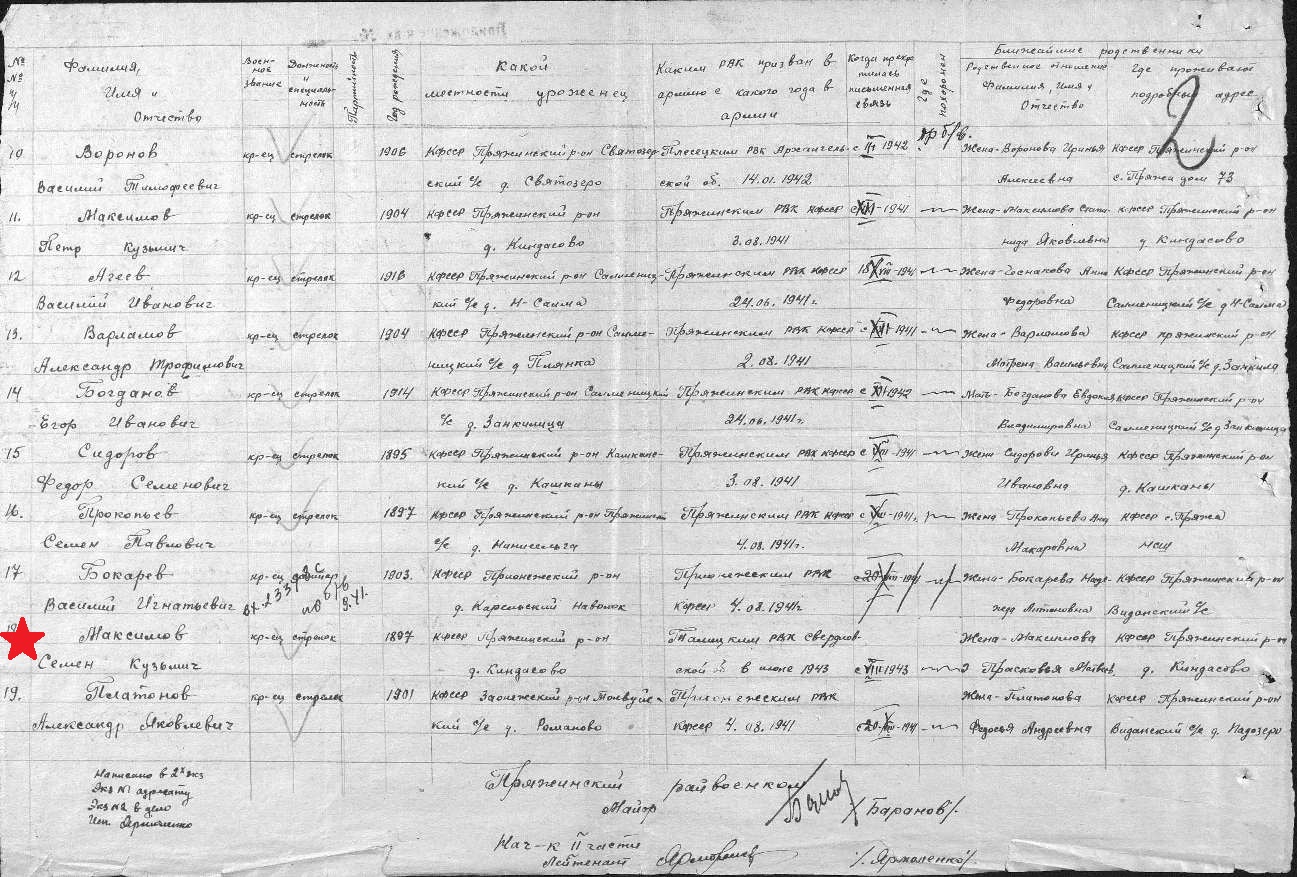 № № п/п Фамилия, Имя и Отчество Воен-ное звание Должность и специаль-ность Партийность Год рождения Какой местности уроженец Каким РВК призван в армию с какого года в армии Когда прекр-тилась письменная связь Где похоронен Ближайшие родственники
Родственное отношение Фамилия Имя и Отчество Где проживают подробный адрес
2
10 Воронов кр-ец стрелок 1906 КФССР Пряжинский р-он Святозер- Плесецким РВК Архангель- с 1942 Жена-Воронова Иринья КФССР Пряжинский р-он
Василий Тимофеевич ский с/с д. Святозеро ской об. 14.01.1942 Алексеевна с. Пряжа дом 73
11. Максимов кр-ец стрелок 1904 КФССР Пряжинский р-он Пряжинским РВК КФССР с -1941 Жена-Максимова КФССР Пряжинский р-он
Петр Кузьмич д. Киндасово 3.08.1941 Яковлевна д Киндасово
12 Агеев кр-ец стрелок 1916 КФССР Пряжинский р-он Салмениц- Пряжинским РВК КФССР -1941 Жена-Госнакова Анна КФССР Пряжинский р-он
Василий Иванович кий с/с д. Н-Салма 24.06.1941г. Федоровна Салменицкий с/с д Н-Салма
13. Варламов кр-ец стрелок 1904 КФССР Пряжинский р-он Салме- Пряжинским РВК КФССР с -1941 Жена-Варламова КФССР пряжинский р-он
Александр Трофимович ницкий с/с д Плянка 2.08.1941 Матрена Васильевна Салменицкий с/с д.
14 Богданов кр-ец стрелок 1914 КФССР Пряжинский р-он Салменицкий Пряжинским РВК КФССР с 1942 Мать-Богданова Евдокия КФССР Пряжинский р-он
Егор Иванович с/с д. Занкилица 24.06.1941г. Владимировна Салменицкий с/с д Занкилица
15 Сидоров кр-ец стрелок 1895 КФССР Пряжинский р-он Кашкан- Пряжинским РВК КФССР с -1941 Жена Сидорова Иринья КФССР Пряжинский р-он
Федор Семенович кий с/с д. Кашканы 3.08.1941 Ивановна д. Кашканы
16. Прокопьев кр-ец стрелок 1897 КФССР Пряжинский р-он Пряжинск Пряжинским РВК КФССР с -1941г. Жена Прокопьева КФССР с. Пряжа
Семен Павлович с/с д. Манисельга 4.08.1941г. Макаровна
17 Бокарев кр-ец 1903. КФССР Прионежский р-он Прионежским РВК с 20 1941 Жена-Бокарева Наде- КФССР Пряжинский р-он
Василий Игнатьевич д. Карельский Наволок КФССР 4.08.1941г жда Антоновна Виданский с/с
Максимов кр-ец стрелок 1897 КФССР Пряжинский р-он Талицким РВК Свердлов- Жена-Максимова КФССР Пряжинский р-он
Семен Кузьмич д. Киндасово ской в июне 1943 с VIII 1943 Прасковья д. Киндасово
19. Платонов кр-ец стрелок 1901 КФССР Заонежский р-он Толвуйс- Прионежским РВК Жена-Платонова КФССР Пряжинский р-он
Александр Яковлевич кий с/с д. Романово КФССР 4.08.1941 с 20 -1941 Федосья Андреевна Виданский с/с д. Падозеро
Написано в 2х экз
Экз №1 адресату
Экз №2 в дело
Исп. Ярмоленко
Пряжинский райвоенком
Майор /Баранов/.
Нач-к II части
Лейтенант /.Ярмоленко/